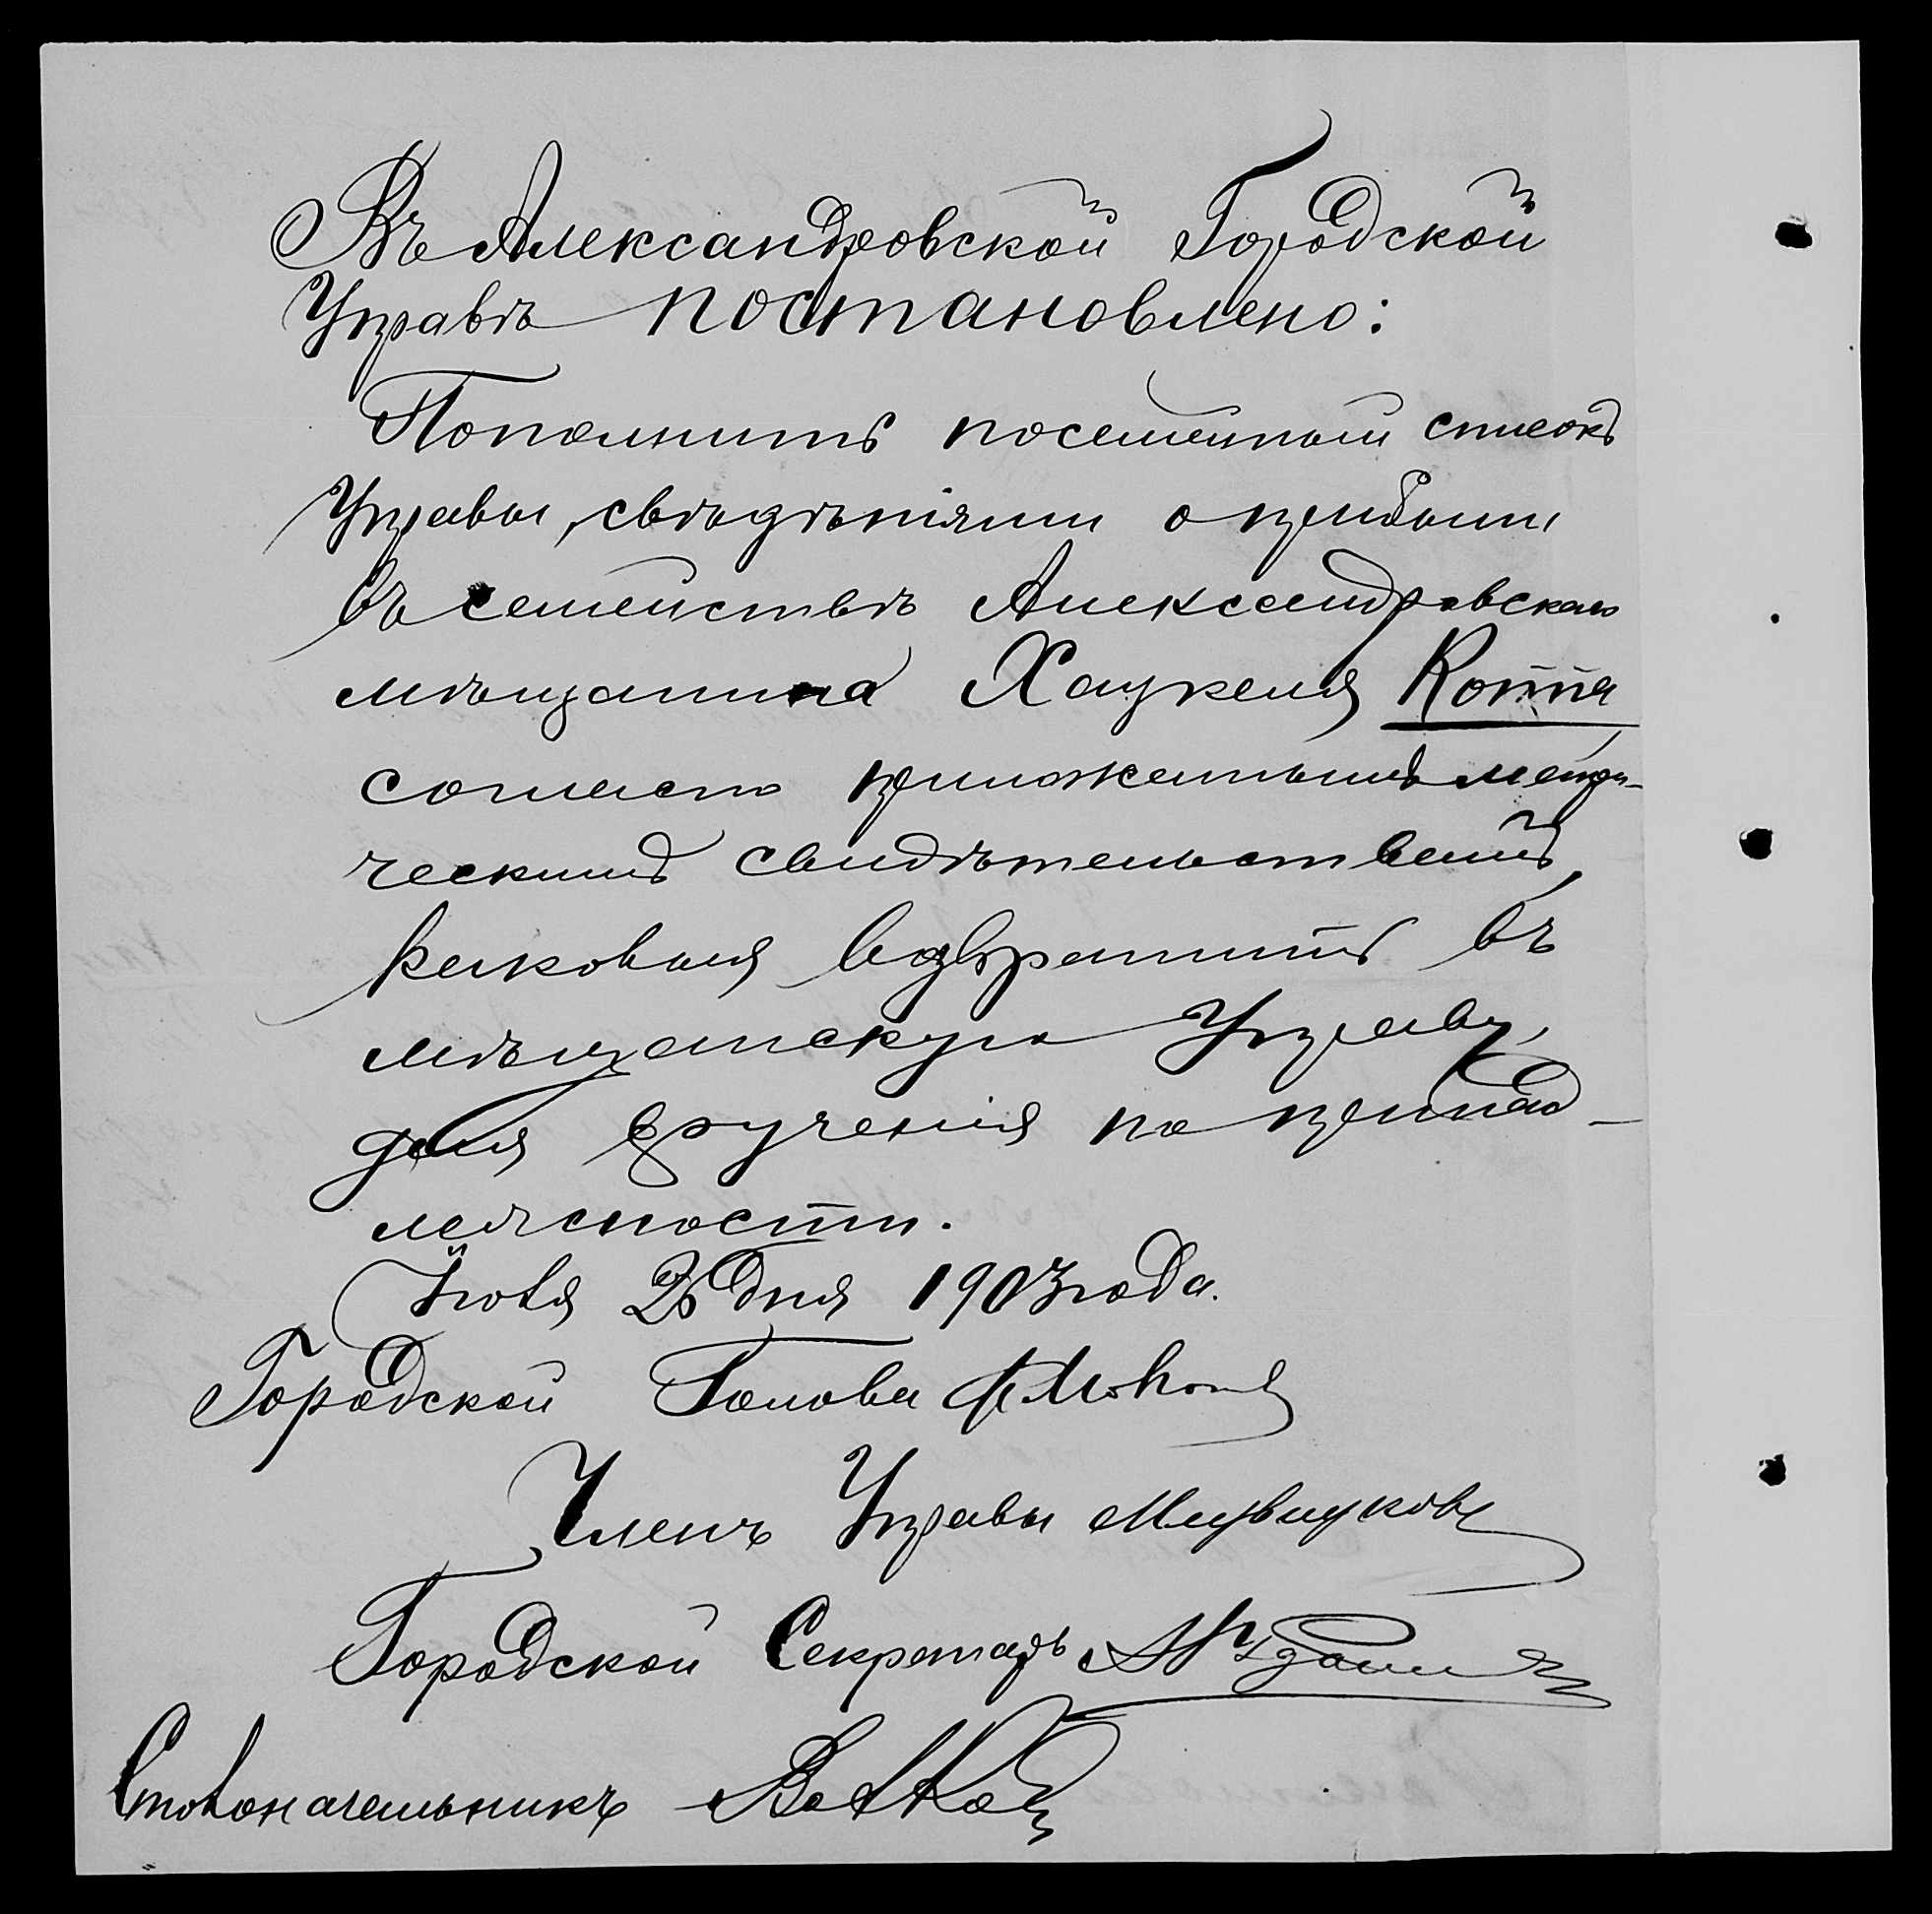 Въ Александровской Городской
Управѣ постановлено:
Пополнить посемейный списокъ
Управы, свѣдѣніями о прибыли
въ семействѣ Александровскаго
мѣщанина Хацкеля Коппа
согласно приложеннымъ метри-
ческимъ свидѣтельствамъ,
каковыя возвратить въ
мѣщанскую Управу,
для врученія по принад-
лежности.
Іюля 2 дня 1903 года.
Городской Голова
Членъ Управы
Городской Секретарь
Столоначальникъ